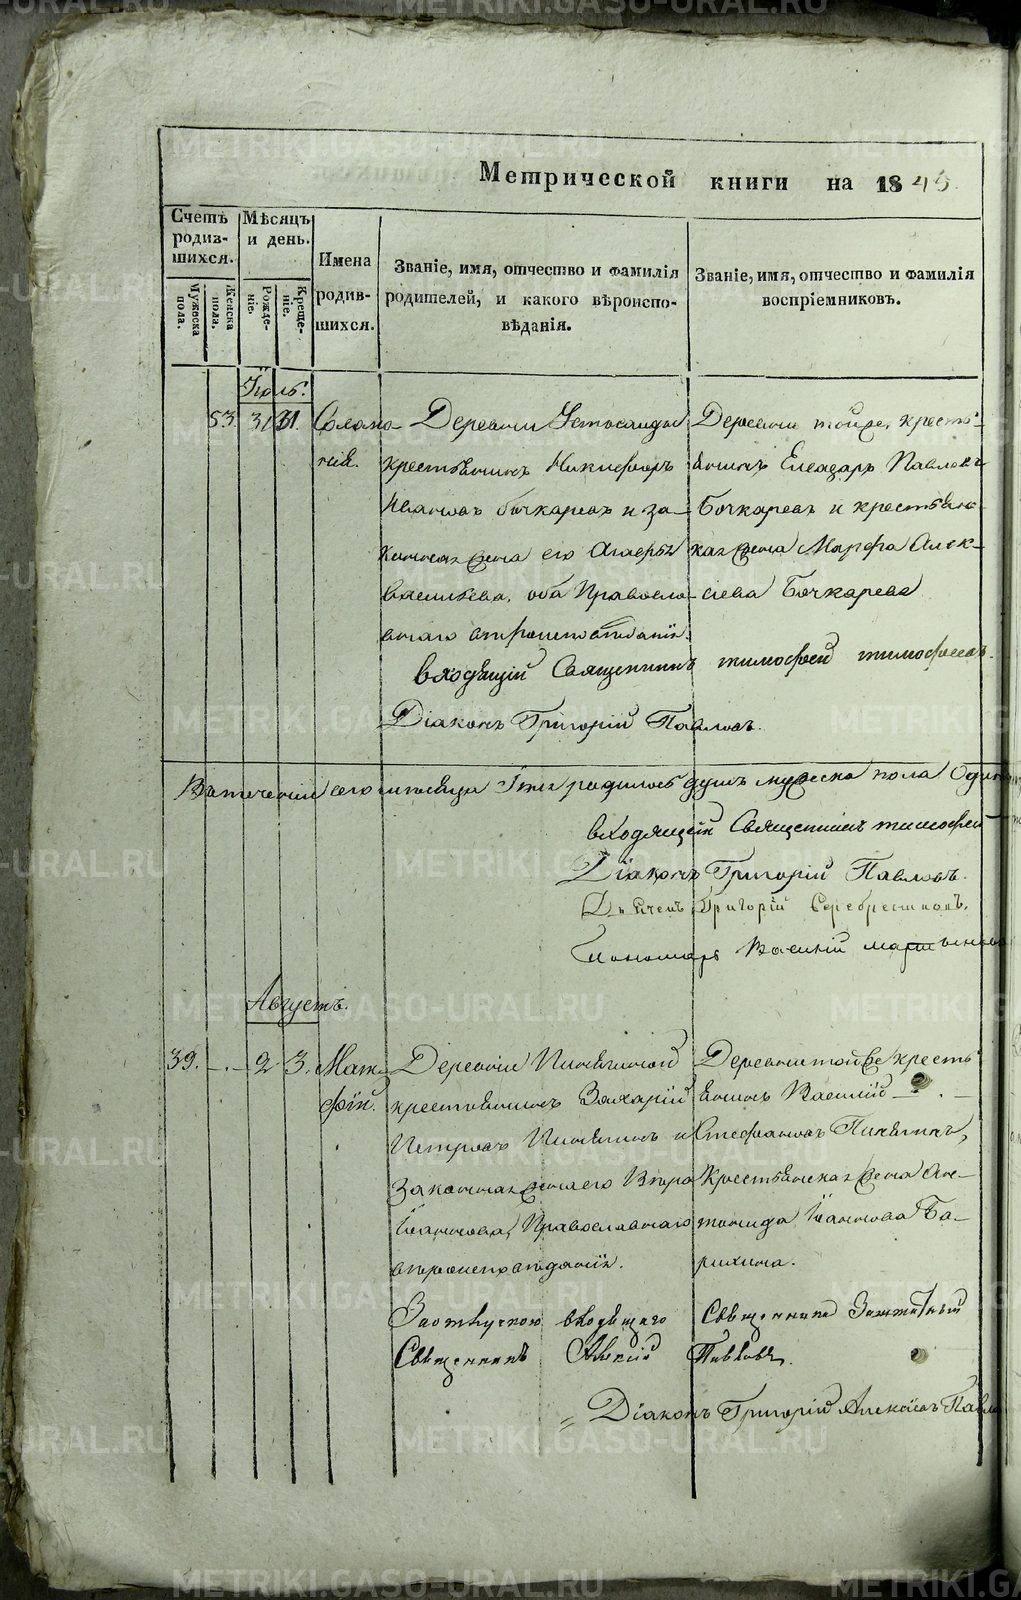 Метрической книги на 1845.
Счетъ родившихся.
Мужеска пола.
Женска пола.
Мѣсяцъ и день.
Рожденіе.
Крещеніе.
Имена родившихся.
Званіе, имя, отчество и фамилія родителей, и какого вѣроисповѣданія.
Званіе, имя, отчество и фамилія воспріемниковъ.
Іюль.
53. 31 31.
Солoмонія.
Деревни
крестьянинъ Никифоръ
Ивановъ Бочкаревъ и за-
конная жена его
Васильева, оба Православ-
наго вѣроисповѣданія.
Деревни тойже, кресть-
янинъ Елеазаръ Павловъ
Бочкаревъ и крестьянс-
кая жена Марфа Алек-
сіева Бочкарева
входящій Священникъ Тимофей Тимофеевъ.
Діаконъ Григорій Павловъ.
Въ теченіи сего мѣсяца Іюля родилось душъ мужеска пола
входящій Священникъ Тимофей
Діаконъ Григорій Павловъ.
Дьячекъ Григорій Серебренниковъ.
Пономарь Василій
Августъ.
39. - . - 2 3.
Матфій.
Деревни
крестьянинъ Захарій
Петровъ и
законная жена его
Іаннова, Православнаго
вѣроисповѣданія.
Деревни тойже кресть-
янинъ Василій
Стефановъ
Крестьянская жена Ан-
тонида Іаннова Ба-
рихина.
За отлучкою входящаго Священника Заштатный
Священникъ Алексій Павловъ.
Діаконъ Григорій Алексіевъ
METRIKI.GASO-URAL.RU